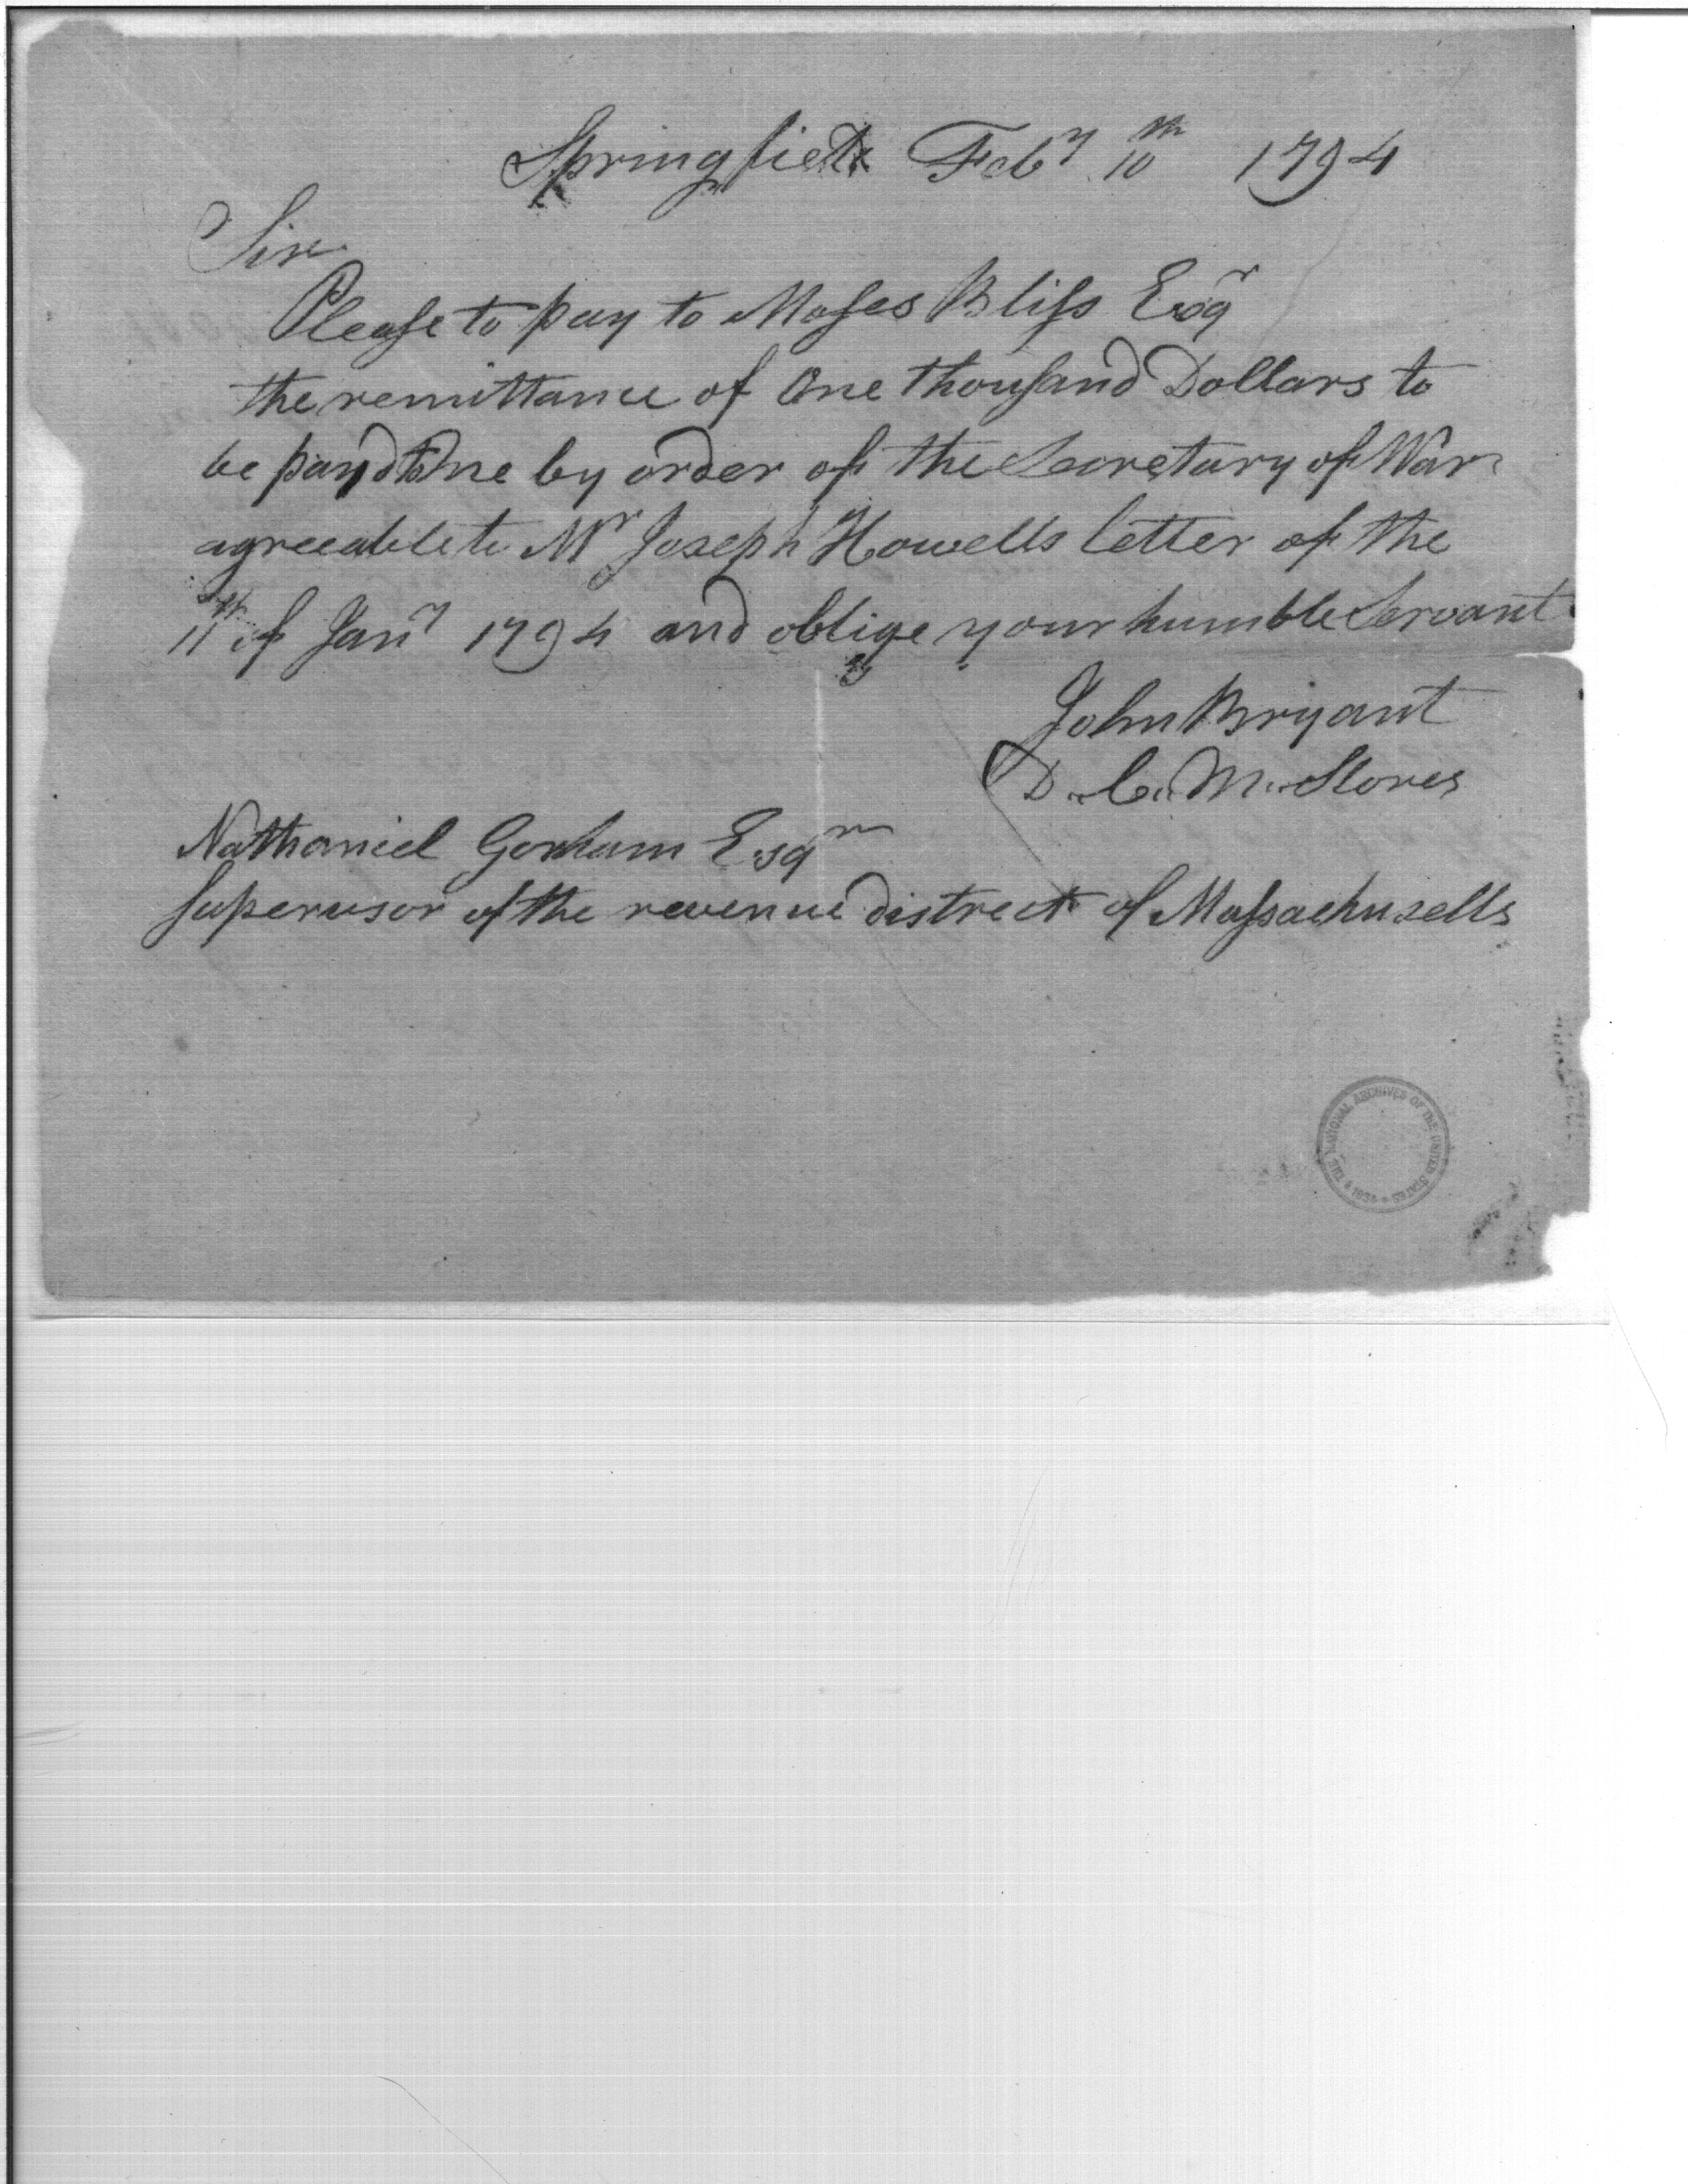 Springfield Feby 10th 1794
Sir
Please to pay to Moses Bliss Esqr
the remittance of One thousand Dollars to
be payd to me by order of the Secretary of War
agreeable to Mr Joseph Howells letter of the
11th of Jany 1794 and oblige your humble Servant
John Bryant
D. C. M. Stores
Nathaniel Gorham Esqr
Supervisor of the revenue district of Massachusetts
THE NATIONAL ARCHIVES OF THE UNITED STATES * 1934 *